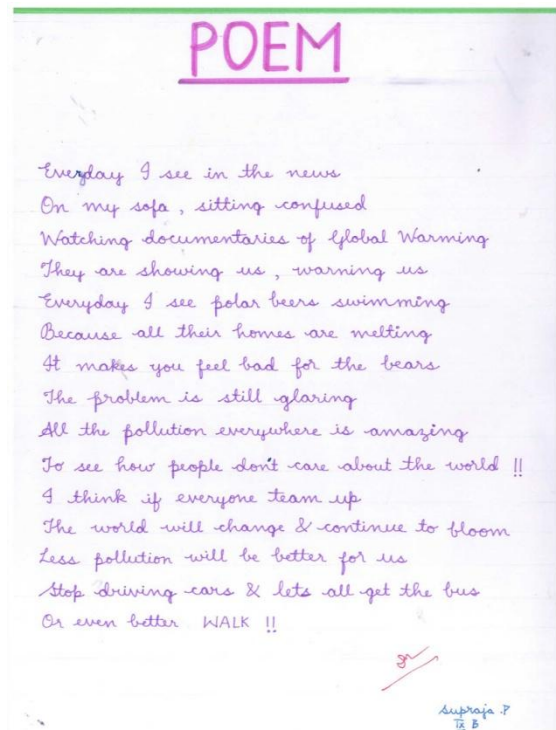 POEM
Everyday I see in the news
On my sofa, sitting confused
Watching documentaries of Global Warming
They are showing us, warning us
Everyday I see polar beers swimming
Because all their homes are melting
It makes you feel bad for the bears
The problem is still glaring
All the pollution everywhere is amazing
To see how people don't care about the world !!
I think if everyone team up
The world will change & continue to bloom
Less pollution will be better for us
Stop driving cars & lets all get the bus
Or even better WALK !!
Supraja .P
IX B